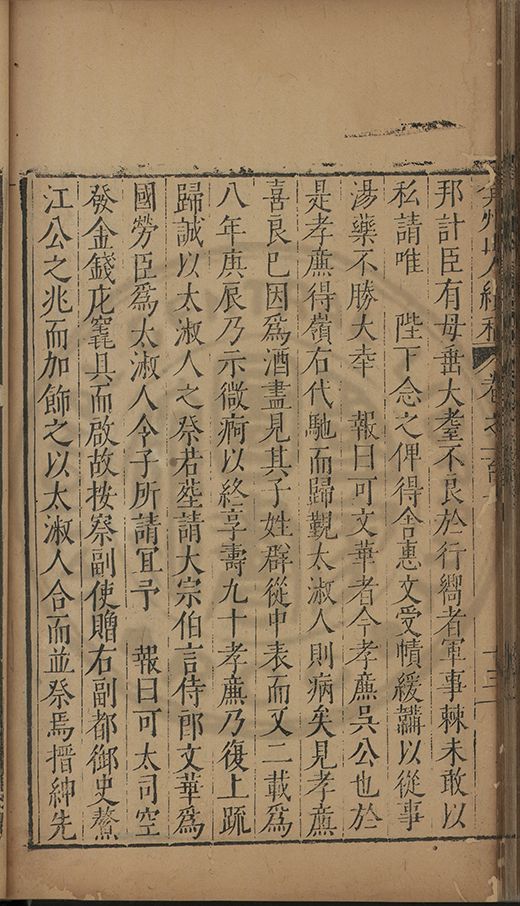 弇州山人續稿 卷之一百
邦計臣有母耋大耋不良於行嚮者軍事棘未敢以
私請唯　陛下念之俾得舍惠文受幘緩韛以從事
湯藥不勝大幸　報曰可文華者今孝廉吳公也於
是孝廉得嶺右代馳而歸覲太淑人則病矣見孝廉
喜良已因爲酒盡見其子姓群從中表而又二載爲
八年庚辰乃示微痾以終享壽九十孝廉乃復上䟽
歸誠以太淑人之祭若塟請大宗伯言侍郎文華爲
國勞臣爲太淑人令子所請冝予　報曰可太司空
發金錢庀窀具而啟故按察副使贈右副都御史螯
江公之兆而加飾之以太淑人合而並祭焉搢紳先